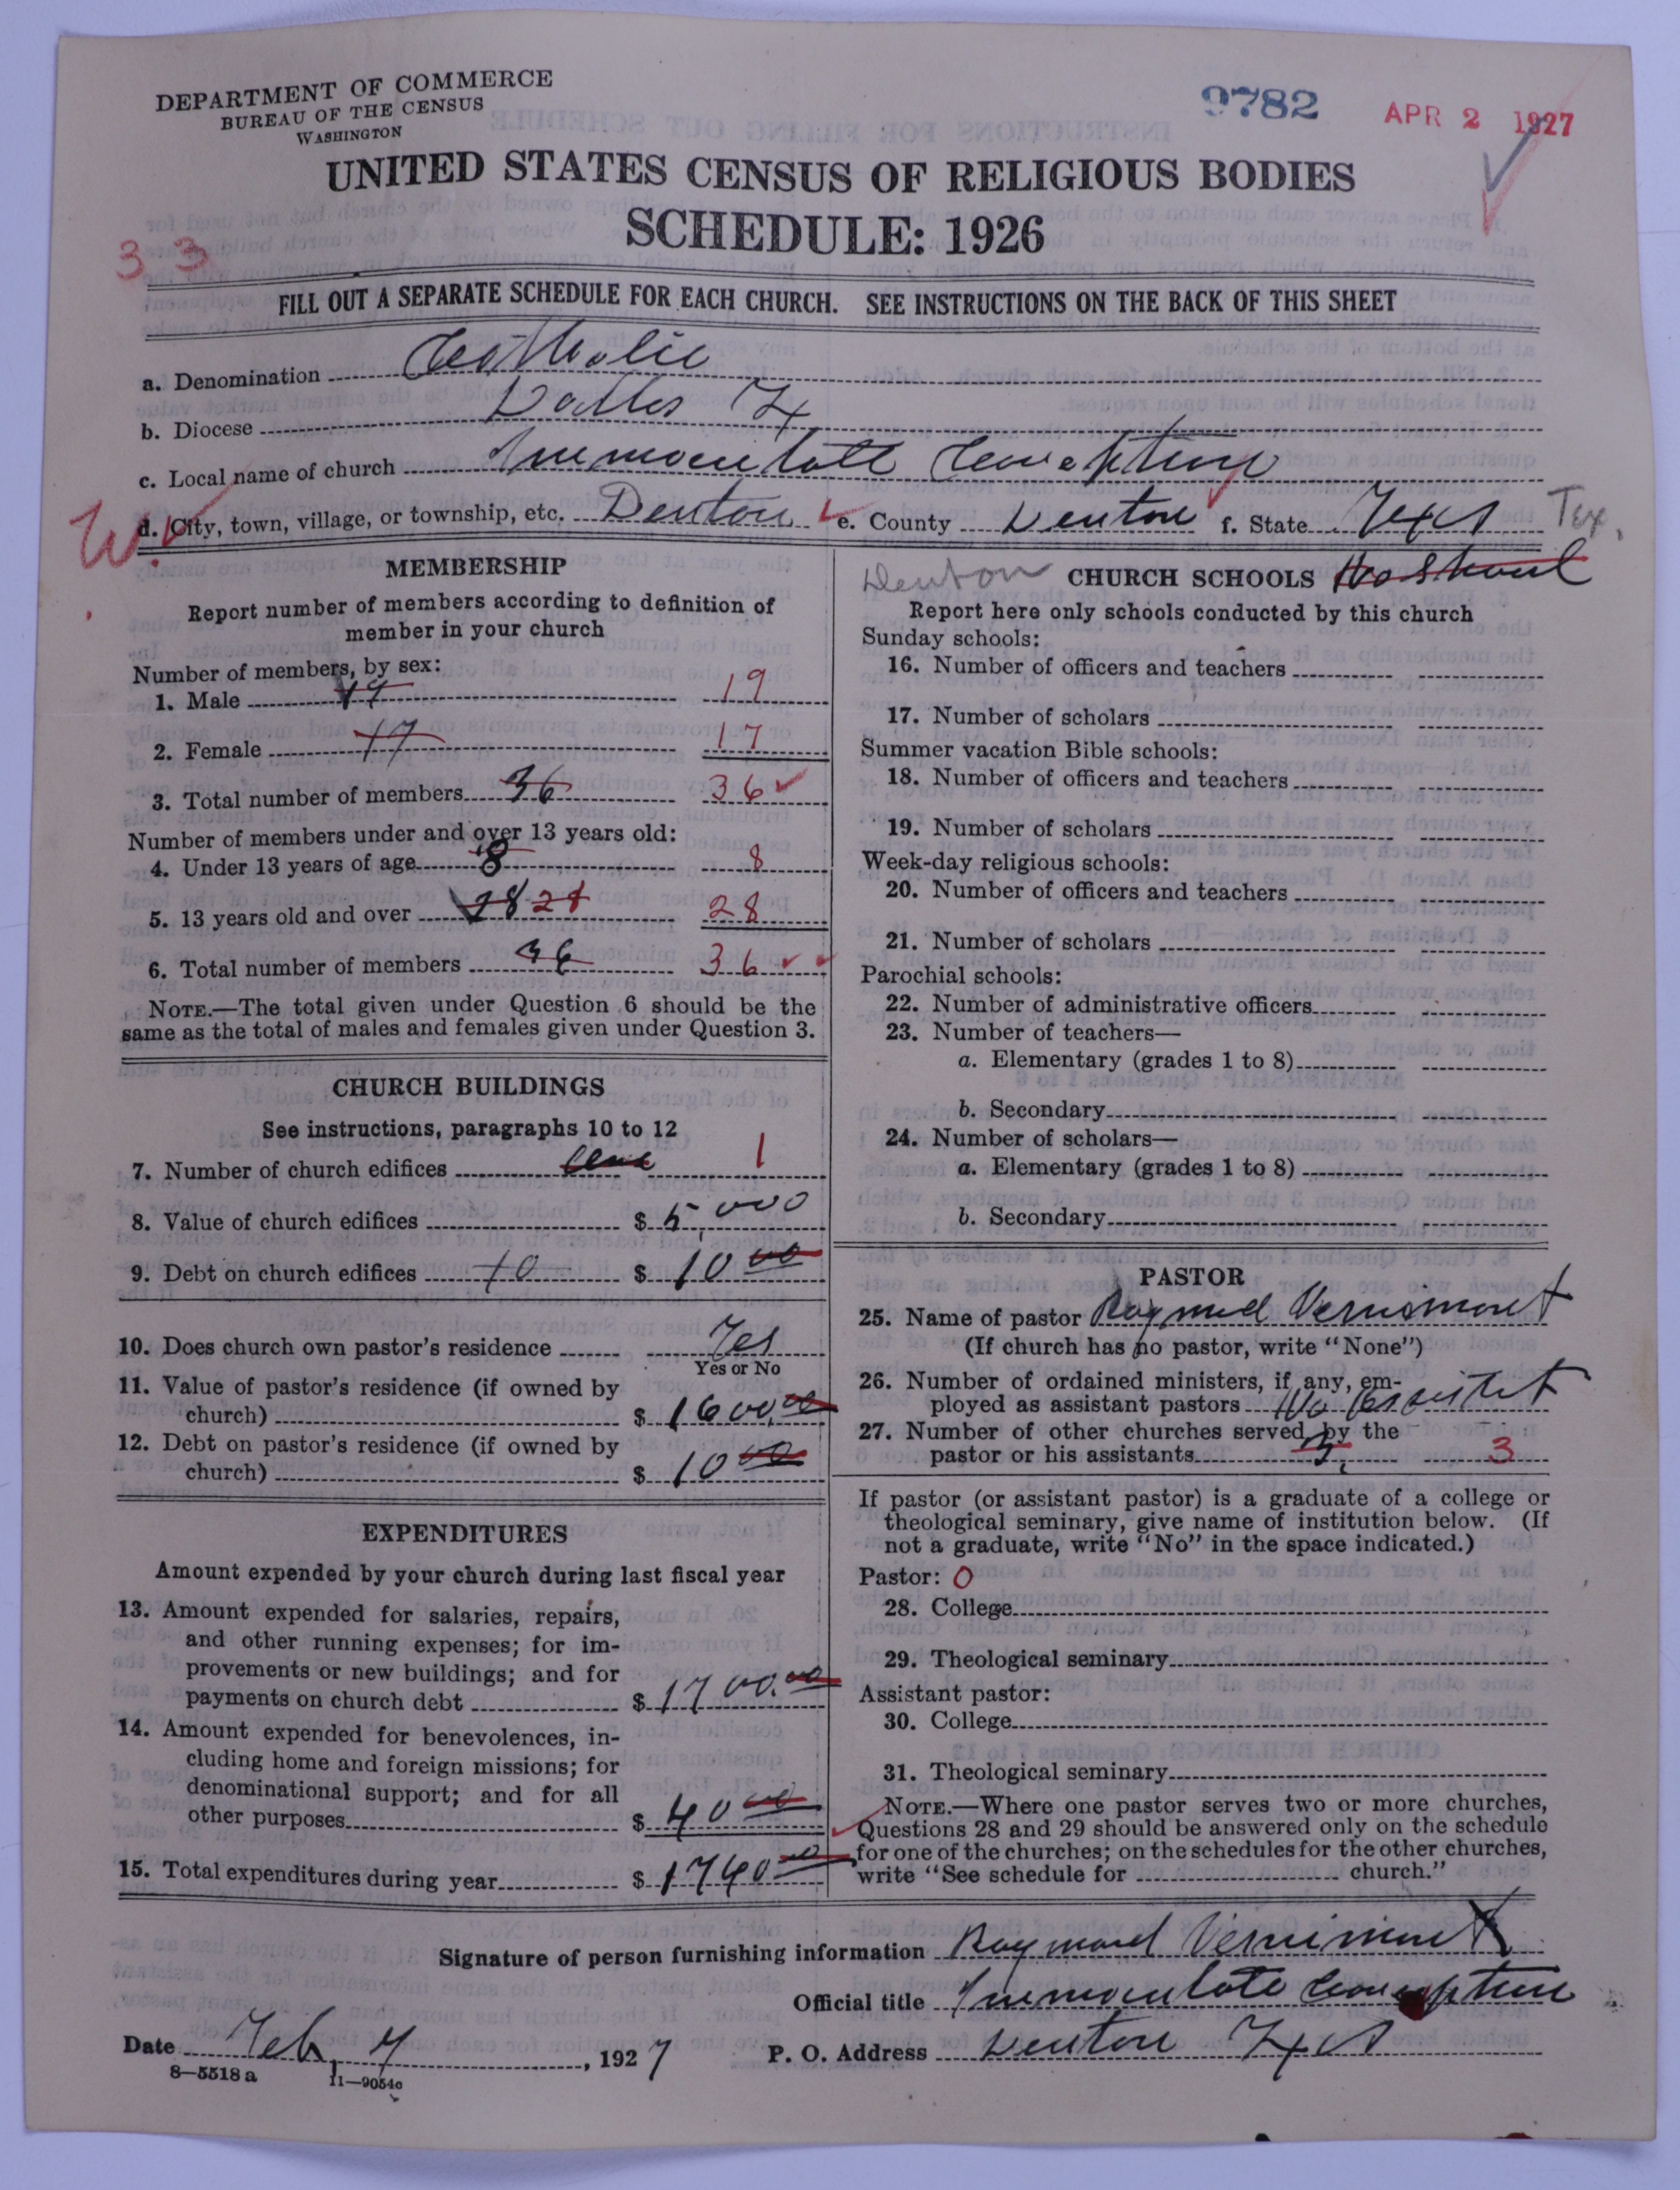 DEPARTMENT OF COMMERCE
BUREAU OF THE CENSUS
WASHINGTON
9782
APR 2 1927
UNITED STATES CENSUS OF RELIGIOUS BODIES
SCHEDULE: 1926
3 3
FILL OUT A SEPARATE SCHEDULE FOR EACH CHURCH. SEE INSTRUCTIONS ON THE BACK OF THIS SHEET
a. Denomination Catholic
b. Diocese Dallas Tx
c. Local name of church Immaculate Conception
d. City, town, village, or township, etc. Denton e. County Denton f. State Texas Tex.
MEMBERSHIP
Report number of members according to definition of
member in your church
Number of members, by sex:
1. Male 19 19
2. Female 17 17
3. Total number of members 36 36
Number of members under and over 13 years old:
4. Under 13 years of age 8 8
5. 13 years old and over 28 28 28
6. Total number of members 36 36
NOTE.—The total given under Question 6 should be the
same as the total of males and females given under Question 3.
CHURCH BUILDINGS
See instructions, paragraphs 10 to 12
7. Number of church edifices 1
8. Value of church edifices $ 5,000
9. Debt on church edifices 10 $ 10 00
10. Does church own pastor's residence Yes
Yes or No
11. Value of pastor's residence (if owned by
church) $ 1600.00
12. Debt on pastor's residence (if owned by
church) $ 10 00
EXPENDITURES
Amount expended by your church during last fiscal year
13. Amount expended for salaries, repairs,
and other running expenses; for im-
provements or new buildings; and for
payments on church debt $ 1700.00
14. Amount expended for benevolences, in-
cluding home and foreign missions; for
denominational support; and for all
other purposes $ 40 00
15. Total expenditures during year $ 1740 00
Denton CHURCH SCHOOLS No School
Report here only schools conducted by this church
Sunday schools:
16. Number of officers and teachers
17. Number of scholars
Summer vacation Bible schools:
18. Number of officers and teachers
19. Number of scholars
Week-day religious schools:
20. Number of officers and teachers
21. Number of scholars
Parochial schools:
22. Number of administrative officers
23. Number of teachers—
a. Elementary (grades 1 to 8)
b. Secondary
24. Number of scholars—
a. Elementary (grades 1 to 8)
b. Secondary
PASTOR
25. Name of pastor Raymond Vernimont
(If church has no pastor, write "None")
26. Number of ordained ministers, if any, em-
ployed as assistant pastors No
27. Number of other churches served by the
pastor or his assistants 3 3
If pastor (or assistant pastor) is a graduate of a college or
theological seminary, give name of institution below. (If
not a graduate, write "No" in the space indicated.)
Pastor: 0
28. College
29. Theological seminary
Assistant pastor:
30. College
31. Theological seminary
NOTE.—Where one pastor serves two or more churches,
Questions 28 and 29 should be answered only on the schedule
for one of the churches; on the schedules for the other churches,
write "See schedule for church."
Signature of person furnishing information Raymond Vernimont
Official title Immaculate Conception
Date Feb 7, 1927 P. O. Address Denton Texas
8—5518a 11—9054c